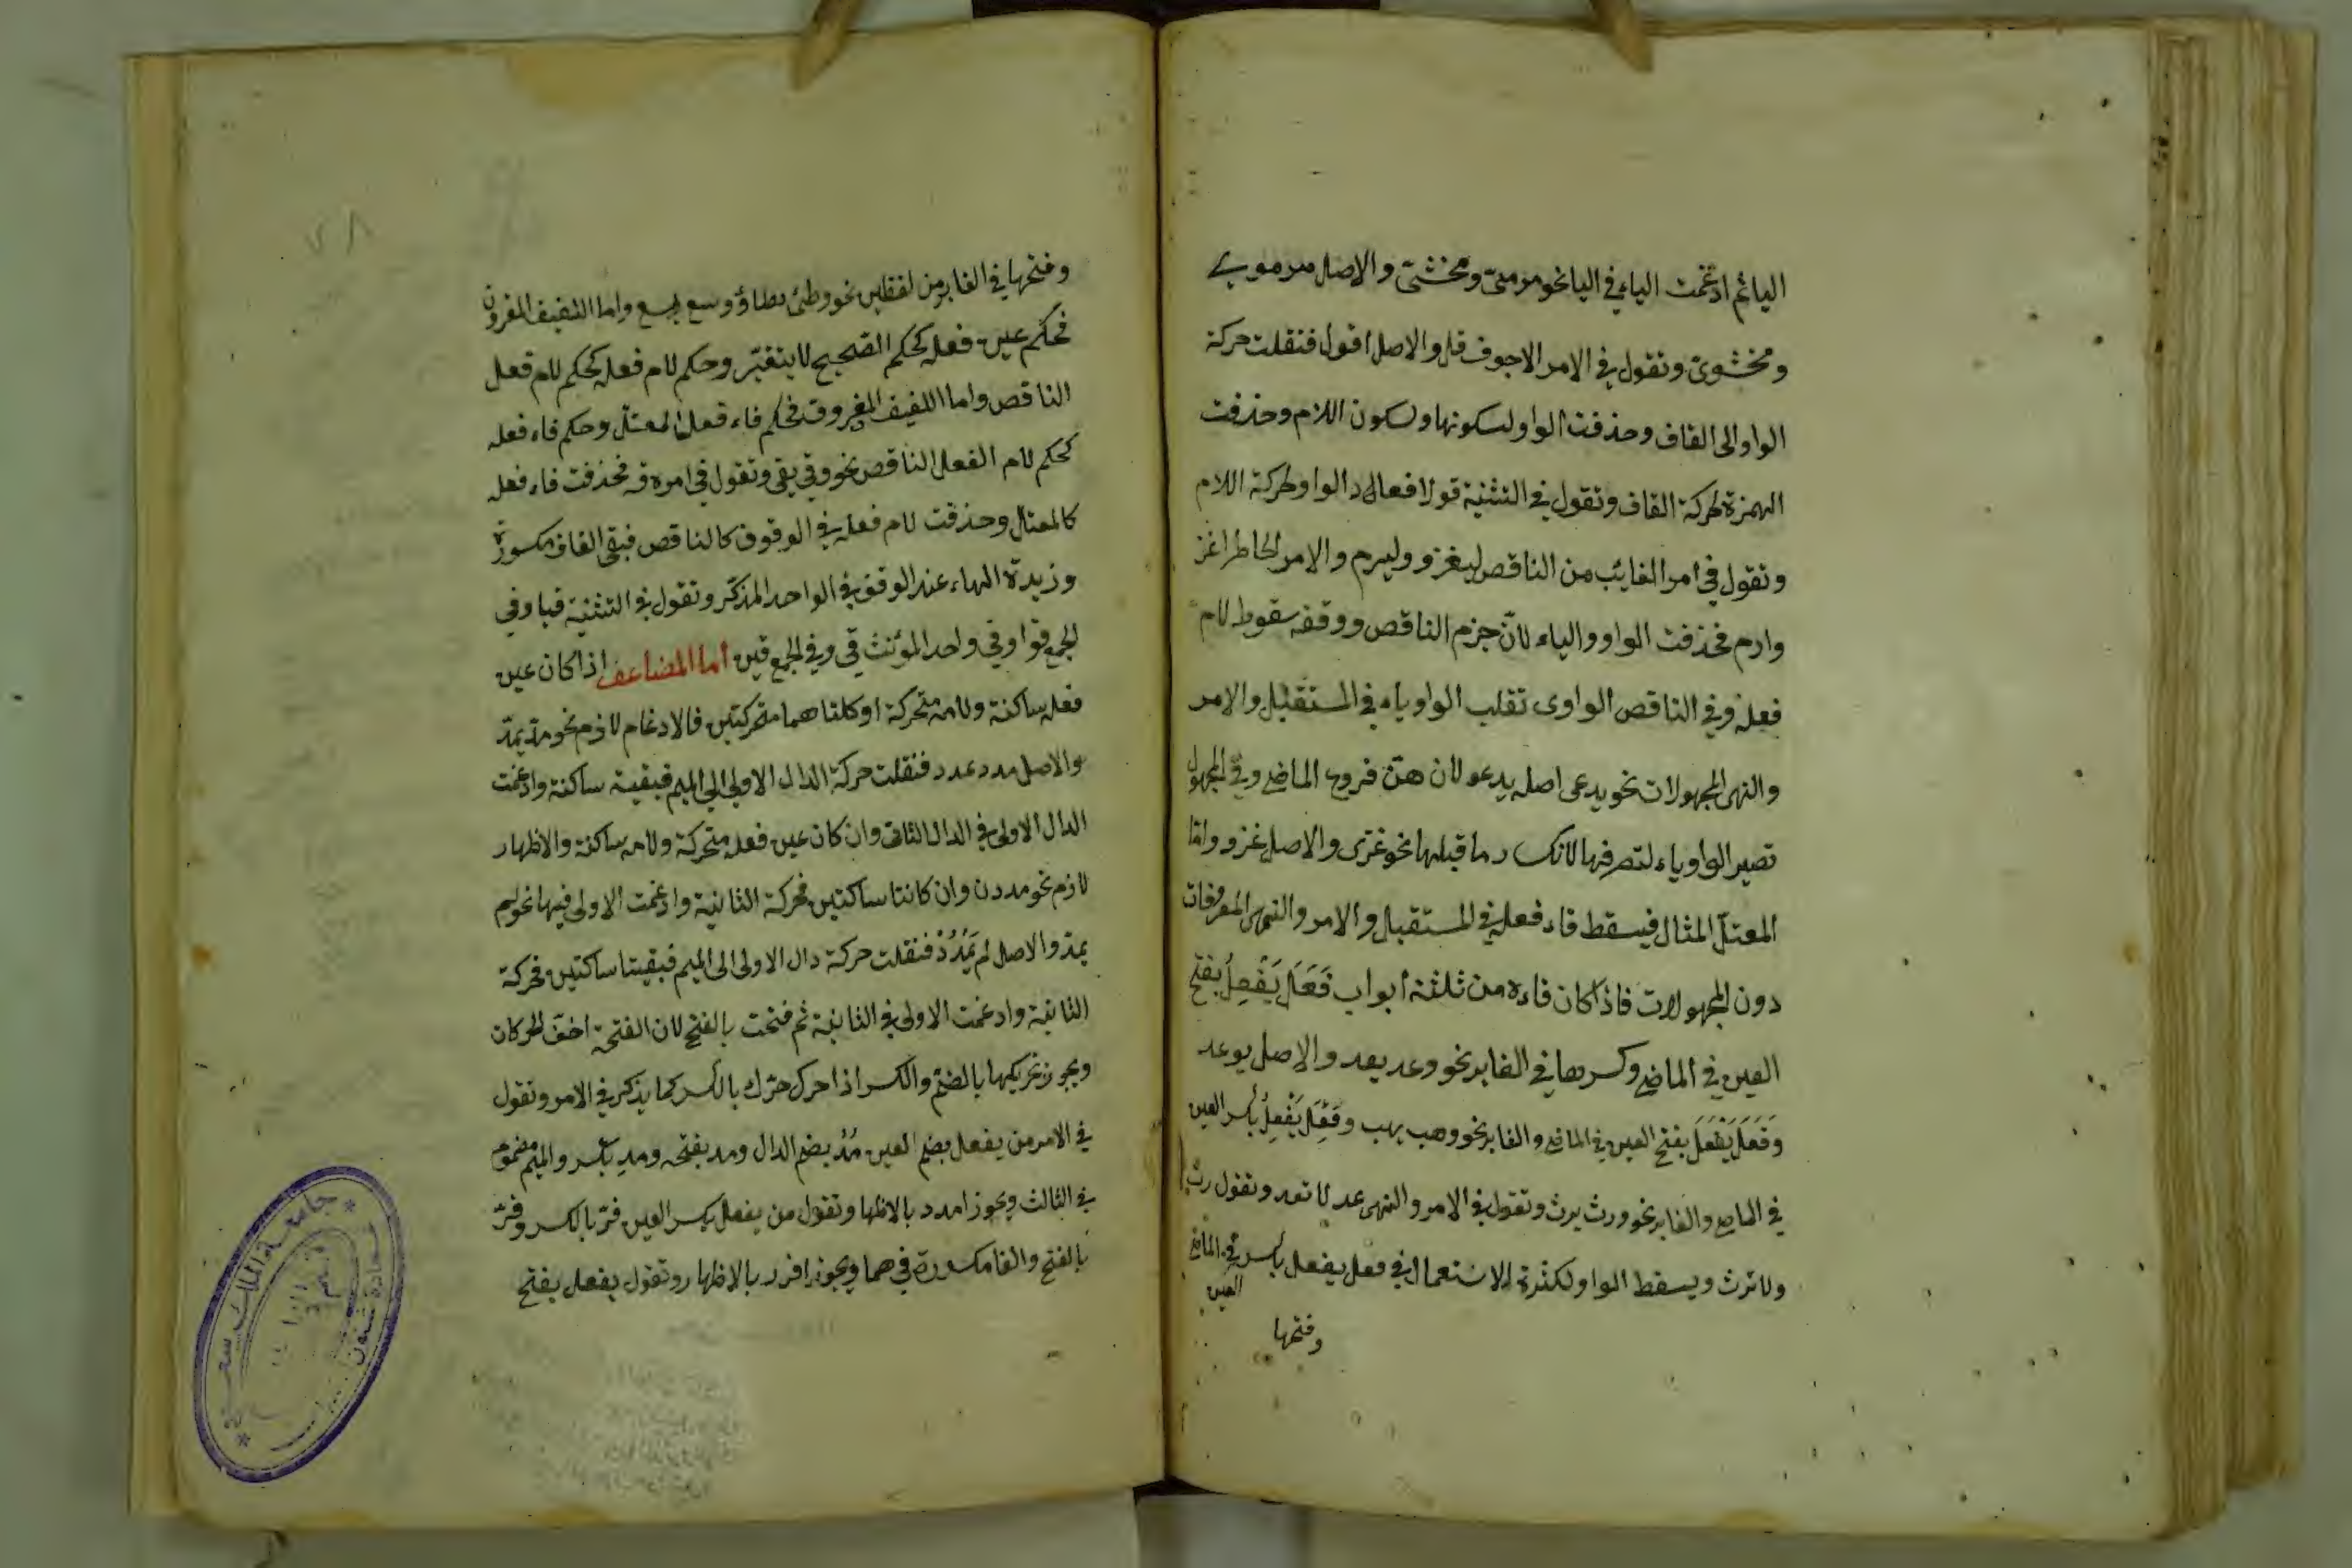 اليا ثم ادغمت الياء في اليا نحو مرمىّ ومخشىّ والاصل مرموى
ومخشوىٌ وتقول في الامر الاجوف قل والاصل اقول فنقلت حركة
الواو الى القاف وحذفت الواو لسكونها ولسكون اللام وحذفت
الهمزة لحركة القاف وتقول في التثنية قولا فعاد الواو لحركة اللام
وتقول في امر الغايب من الناقص ليغزو وليرم والامر لحاطر اغز
وارم فحذفت الواو والياء لانّ جزم الناقص ووقفه سقوط لام
فعله وفي الناقص الواوى تقلب الواو ياء في المستقبل والامر
والنهى المجهولات نحو يدعى اصله يدعو لان هنّ فروع الماضي وفي المجهول
تصير الواو ياء لتصرفها لانكسار ما قبلها نحو غزى والاصل غزو وامّا
المعتلّ المثال فيسقط فاء فعله في المستقبل والامر والنهى المعرفات
دون المجهولات فاذا كان فاءه من ثلثة ابواب فَعَلَ يَفْعِلُ بفتح
العين في الماضي وكسرها في الغابر نحو وعد يعد والاصل يوعد
وَفَعَلَ يَفْعَلُ بفتح العين في الماضي والغابر نحو وهب يهب وفَعِلَ يَفْعِلُ بكسر العين
في الماضي والغابر نحو ورث يرث وتقول في الامر والنهى عد لا تعد وتقول رث
ولا ترث ويسقط الواو لكثرة الاستعمال في فعل يفعل بكسر في الماضي
العين
وفتحها
٧٨
وفتحها في الغابر من لفظين نحو وطئ يطاؤ وسع يسع واما اللفيف المقرون
فحكم عين فعله كحكم الصحيح لا يتغيّر وحكم لام فعله كحكم لام فعل
الناقص واما اللفيف المفروق فحكم فاء فعل المعتلّ وحكم فاء فعله
كحكم لام الفعل الناقص نحو وقى يقى وتقول في امره قه فحذفت فاء فعله
كالمعتال وحذفت لام فعله في الوقوف كالناقص فبقى القاف مكسورة
وزيدة الهاء عند الوقف في الواحد المذكّر وتقول في التثنية قيا وفي
الجمع قوا وفي واحد المؤنث قي وفي الجمع قين اما المضاعف اذا كان عين
فعله ساكنة ولامه متحركة او كلتاهما متحركتين فالادغام لازم نحو مدّ يمدّ
والاصل مدد يمدد فنقلت حركة الدال الاولى الى الميم فبقيت ساكنة وادغمت
الدال الاولى في الدال الثانى وان كان عين فعله متحركة ولامه ساكنة والاظهار
لازم نحو مددن وان كانتا ساكتين فحركة الثانية وادغمت الاولى فيها نحو لم
يمدّ والاصل لم يَمْدُدْ فنقلت حركة دال الاولى الى الميم فبقيتا ساكتين فحركة
الثانية وادغمت الاولى في الثانية ثم فتحت بالفتح لان الفتحة اخفّ الحركان
ويجوز تحريكها بالضم والكسر اذا حرك حرّك بالكسر كما يذكر في الامر وتقول
في الامر من يفعل بضم العين مُدُّ بضم الدال ومد بفتحه ومدِ بكسر والميم مضموم
في الثالث ويجوز امدد بالاظها وتقول من يفعل بكسر العين فرّ بالكسر وفرّ
بالفتح والفا مكسورة في هما ويجوز افرر بالاظهار وتقول يفعل بفتح
جامعة الملك سعود
عمادة شئون